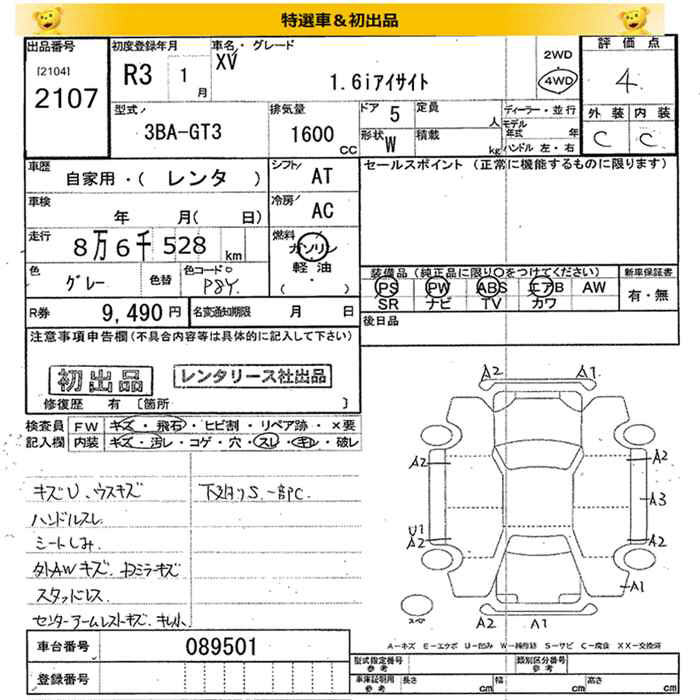 特選車&初出品
出品番号
[2104]
2107
初度登録年月
R3 1 月
車名・グレード
XV
1.6iアイサイト
2WD
4WD
評価点
4
外装 内装
C C
型式
3BA-GT3
排気量
1600 CC
ドア 5
形状 W
定員 人
積載 kg
ディーラー・並行
モデル年式 年
ハンドル 左・右
車歴
自家用・( レンタ )
シフト
AT
セールスポイント (正常に機能するものに限ります)
車検
年 月( 日)
冷房
AC
走行
8万6千528 km
燃料
ガソリン
軽油
( )
色
グレー
色替
色コードNo
P8Y
装備品 (純正品に限り○をつけてください)
PS PW ABS エアB AW
SR ナビ TV カワ
新車保証書
有・無
R券
9,490円
名変通知期限 月 日
後日品
注意事項申告欄(不具合内容等は具体的に記入して下さい)
初出品
レンタリース社出品
修復歴 有 [箇所 ]
検査員記入欄
FW キズ・飛石・ヒビ割・リペア跡・×要
内装 キズ・汚レ・コゲ・穴・スレ・キレ・破レ
キズU、ウスキズ
下廻りS、一部PC.
ハンドルスレ
シートしみ
外AWキズ、ドアミラーキズ
スタッドレス
センターアームレストキズ・キレ小
A2 A1
A2 A2
A3
U1
A2 A2
A1
A2 A1
スペア
A-キズ E-エクボ U-凹み W-補修跡 S-サビ C-腐食 XX-交換済
車台番号
089501
登録番号
型式指定番号 参考
類別区分番号 参考
車庫証明用 参考
長さ cm
幅 cm
高さ cm